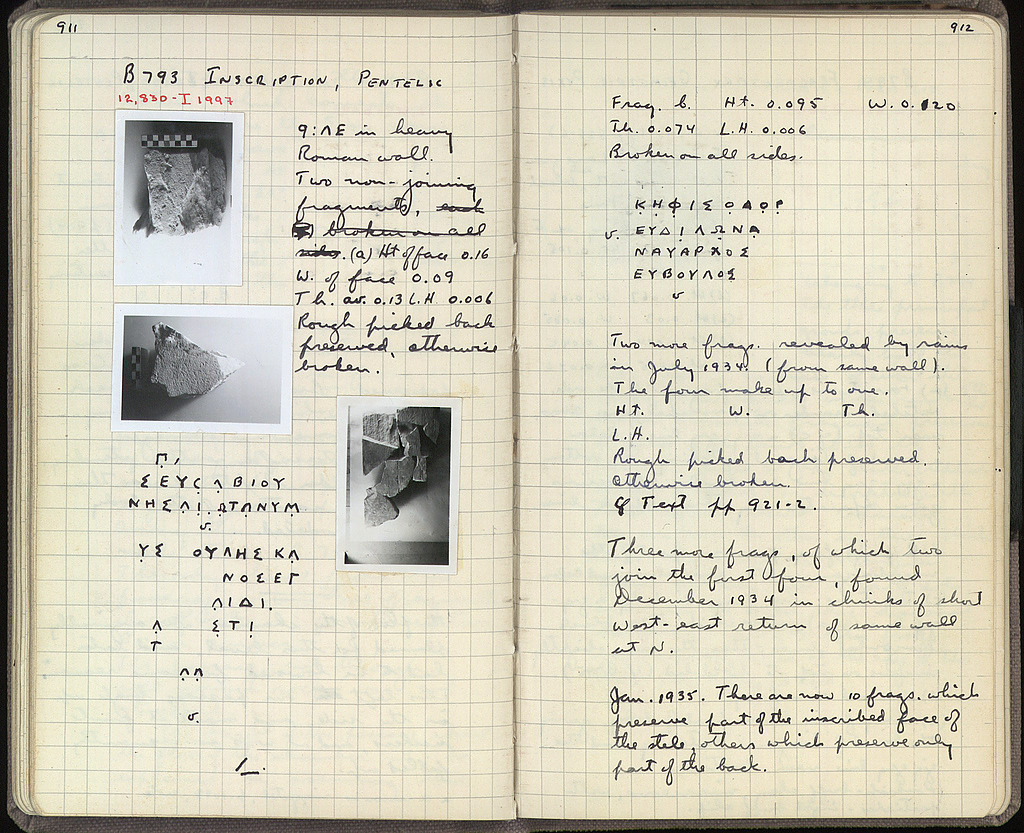 911
B 793 INSCRIPTION, PENTELIC
12,830 - I 1997
9:ΛΕ in heavy
Roman wall.
Two non-joining
fragments, each
broken on all
sides. (a) Ht of face 0.16
W. of face 0.09
Th. av. 0.13 L.H. 0.006
Rough picked back
preserved, otherwise
broken.
Π,
ΣΕΥΣΛΒΙΟΥ
ΝΗΣΛΙ.ΩΤΛΝΥΜ
v.
ΥΣ ΟΥΛΗΣΚΛ
ΝΟΣΕΓ
ΛΙΔΙ.
Λ ΣΤΙ
Τ
ΛΛ
v.
912
Frag. b. Ht. 0.095 W. 0.120
Th. 0.074 L.H. 0.006
Broken on all sides.
ΚΗΦΙΣΟΔΟΡ
v. ΕΥΔΙΛΩΝΑ
ΝΑΥΑΡΧΟΣ
ΕΥΒΟΥΛΟΣ
v
Two more frags. revealed by rains
in July 1934. (from same wall).
The four make up to one.
Ht. W. Th.
L.H.
Rough picked back preserved,
otherwise broken.
Text pp 921-2.
Three more frags, of which two
join the first four, found
December 1934 in chinks of short
West-east return of same wall
at N.
Jan. 1935. There are now 10 frags. which
preserve part of the inscribed face of
the stele, others which preserve only
part of the back.